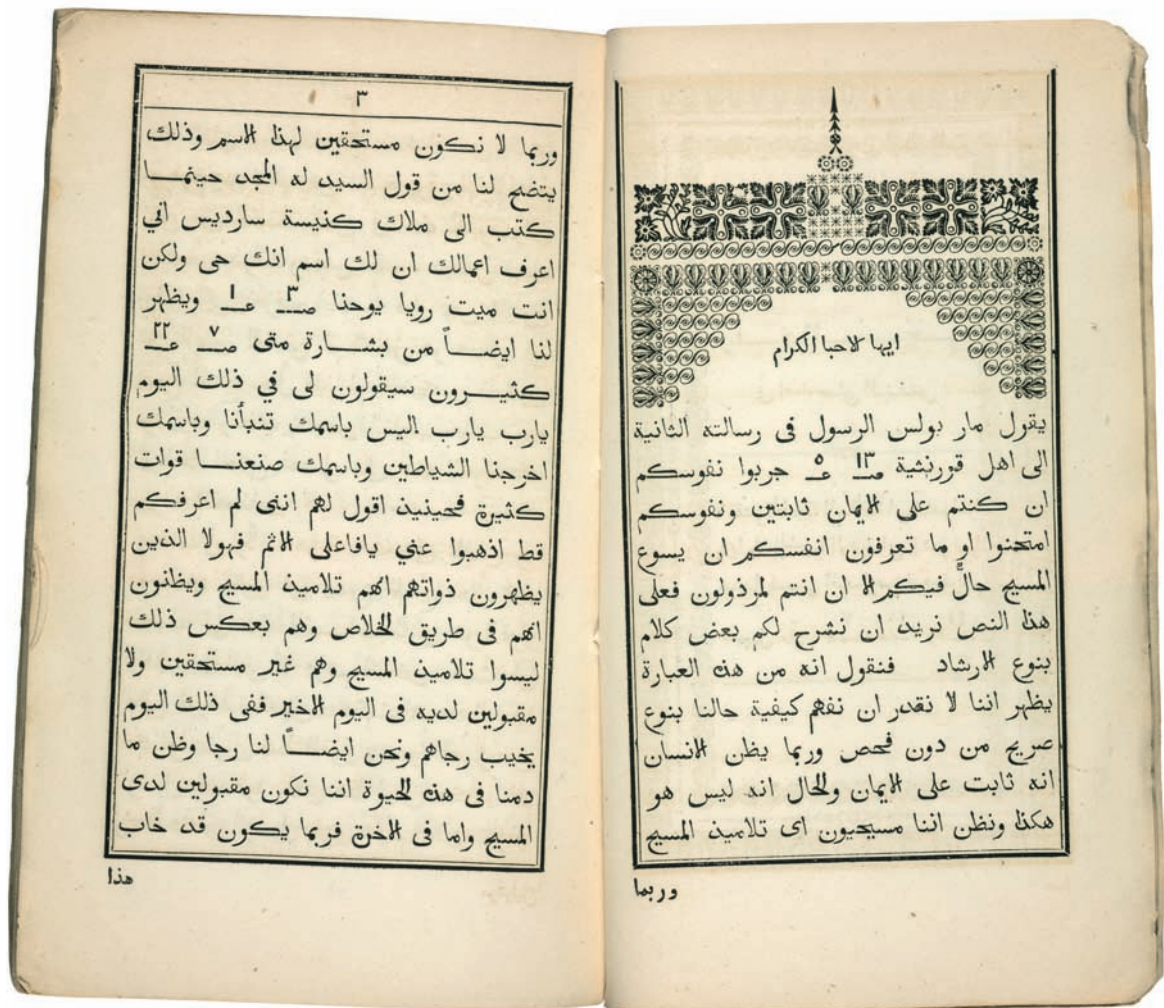 ايها الاحبا الكرام
يقول مار بولس الرسول فى رسالته الثانية
الى اهل قورنثية صـ ١٣ عـ ٥ جربوا نفوسكم
ان كنتم على الايمان ثابتين ونفوسكم
امتحنوا او ما تعرفون انفسكم ان يسوع
المسيح حالٌّ فيكم الا ان انتم لمرذولون فعلى
هذا النص نريد ان نشرح لكم بعض كلام
بنوع الارشاد فنقول انه من هذه العبارة
يظهر اننا لا نقدر ان نفهم كيفية حالنا بنوع
صريح من دون فحص وربما يظن الانسان
انه ثابت على الايمان والحال انه ليس هو
هكذا ونظن اننا مسيحيون اى تلاميذ المسيح
وربما
٣
وربما لا نكون مستحقين لهذا الاسم وذلك
يتضح لنا من قول السيد له المجد حينما
كتب الى ملاك كنيسة سارديس اني
اعرف اعمالك ان لك اسم انك حى ولكن
انت ميت رويا يوحنا صـ ٣ عـ ١ ويظهر
لنا ايضاً من بشارة متى صـ ٧ عـ ٢٢
كثيرون سيقولون لى في ذلك اليوم
يارب يارب اليس باسمك تنبأنا وباسمك
اخرجنا الشياطين وباسمك صنعنا قوات
كثيرة فحينيذ اقول لهم اننى لم اعرفكم
قط اذهبوا عني يافاعلى الاثم فهولا الذين
يظهرون ذواتهم انهم تلاميذ المسيح ويظنون
انهم فى طريق الخلاص وهم بعكس ذلك
ليسوا تلاميذ المسيح وهم غير مستحقين ولا
مقبولين لديه فى اليوم الاخير ففى ذلك اليوم
يخيب رجاهم ونحن ايضاً لنا رجا وظن ما
دمنا فى هذه الحيوة اننا نكون مقبولين لدى
المسيح واما فى الاخرة فربما يكون قد خاب
هذا